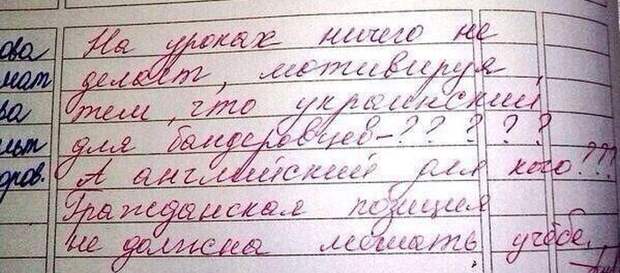 ова На уроках ничего не
мат делает, мотивируя
ва тем, что украинский
льт для бандеровцев-? ? ? ? ?
ров. А английский для кого???
Гражданская позиция
не должна мешать учебе.